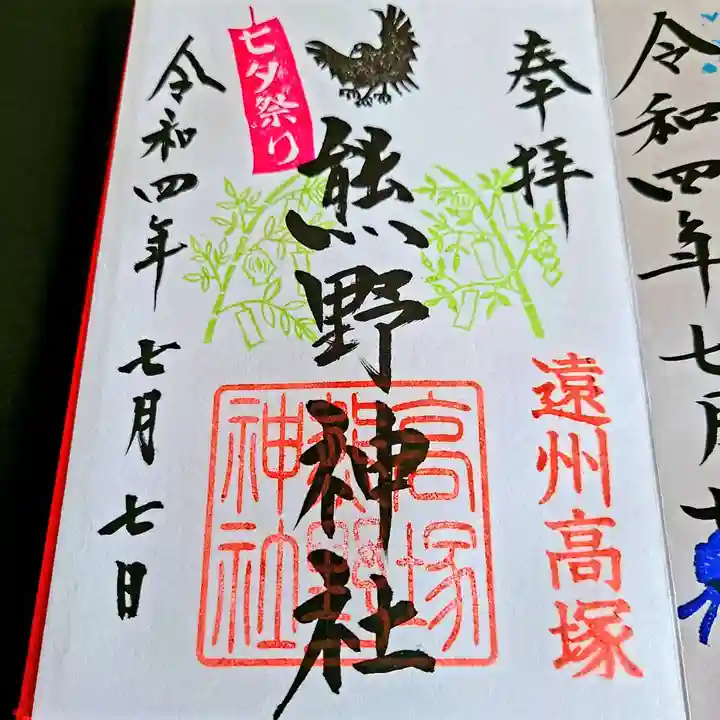 奉拝
遠州高塚
熊野神社
高塚
熊野
神社
七夕祭り
令和四年 七月七日
令和四年七月十